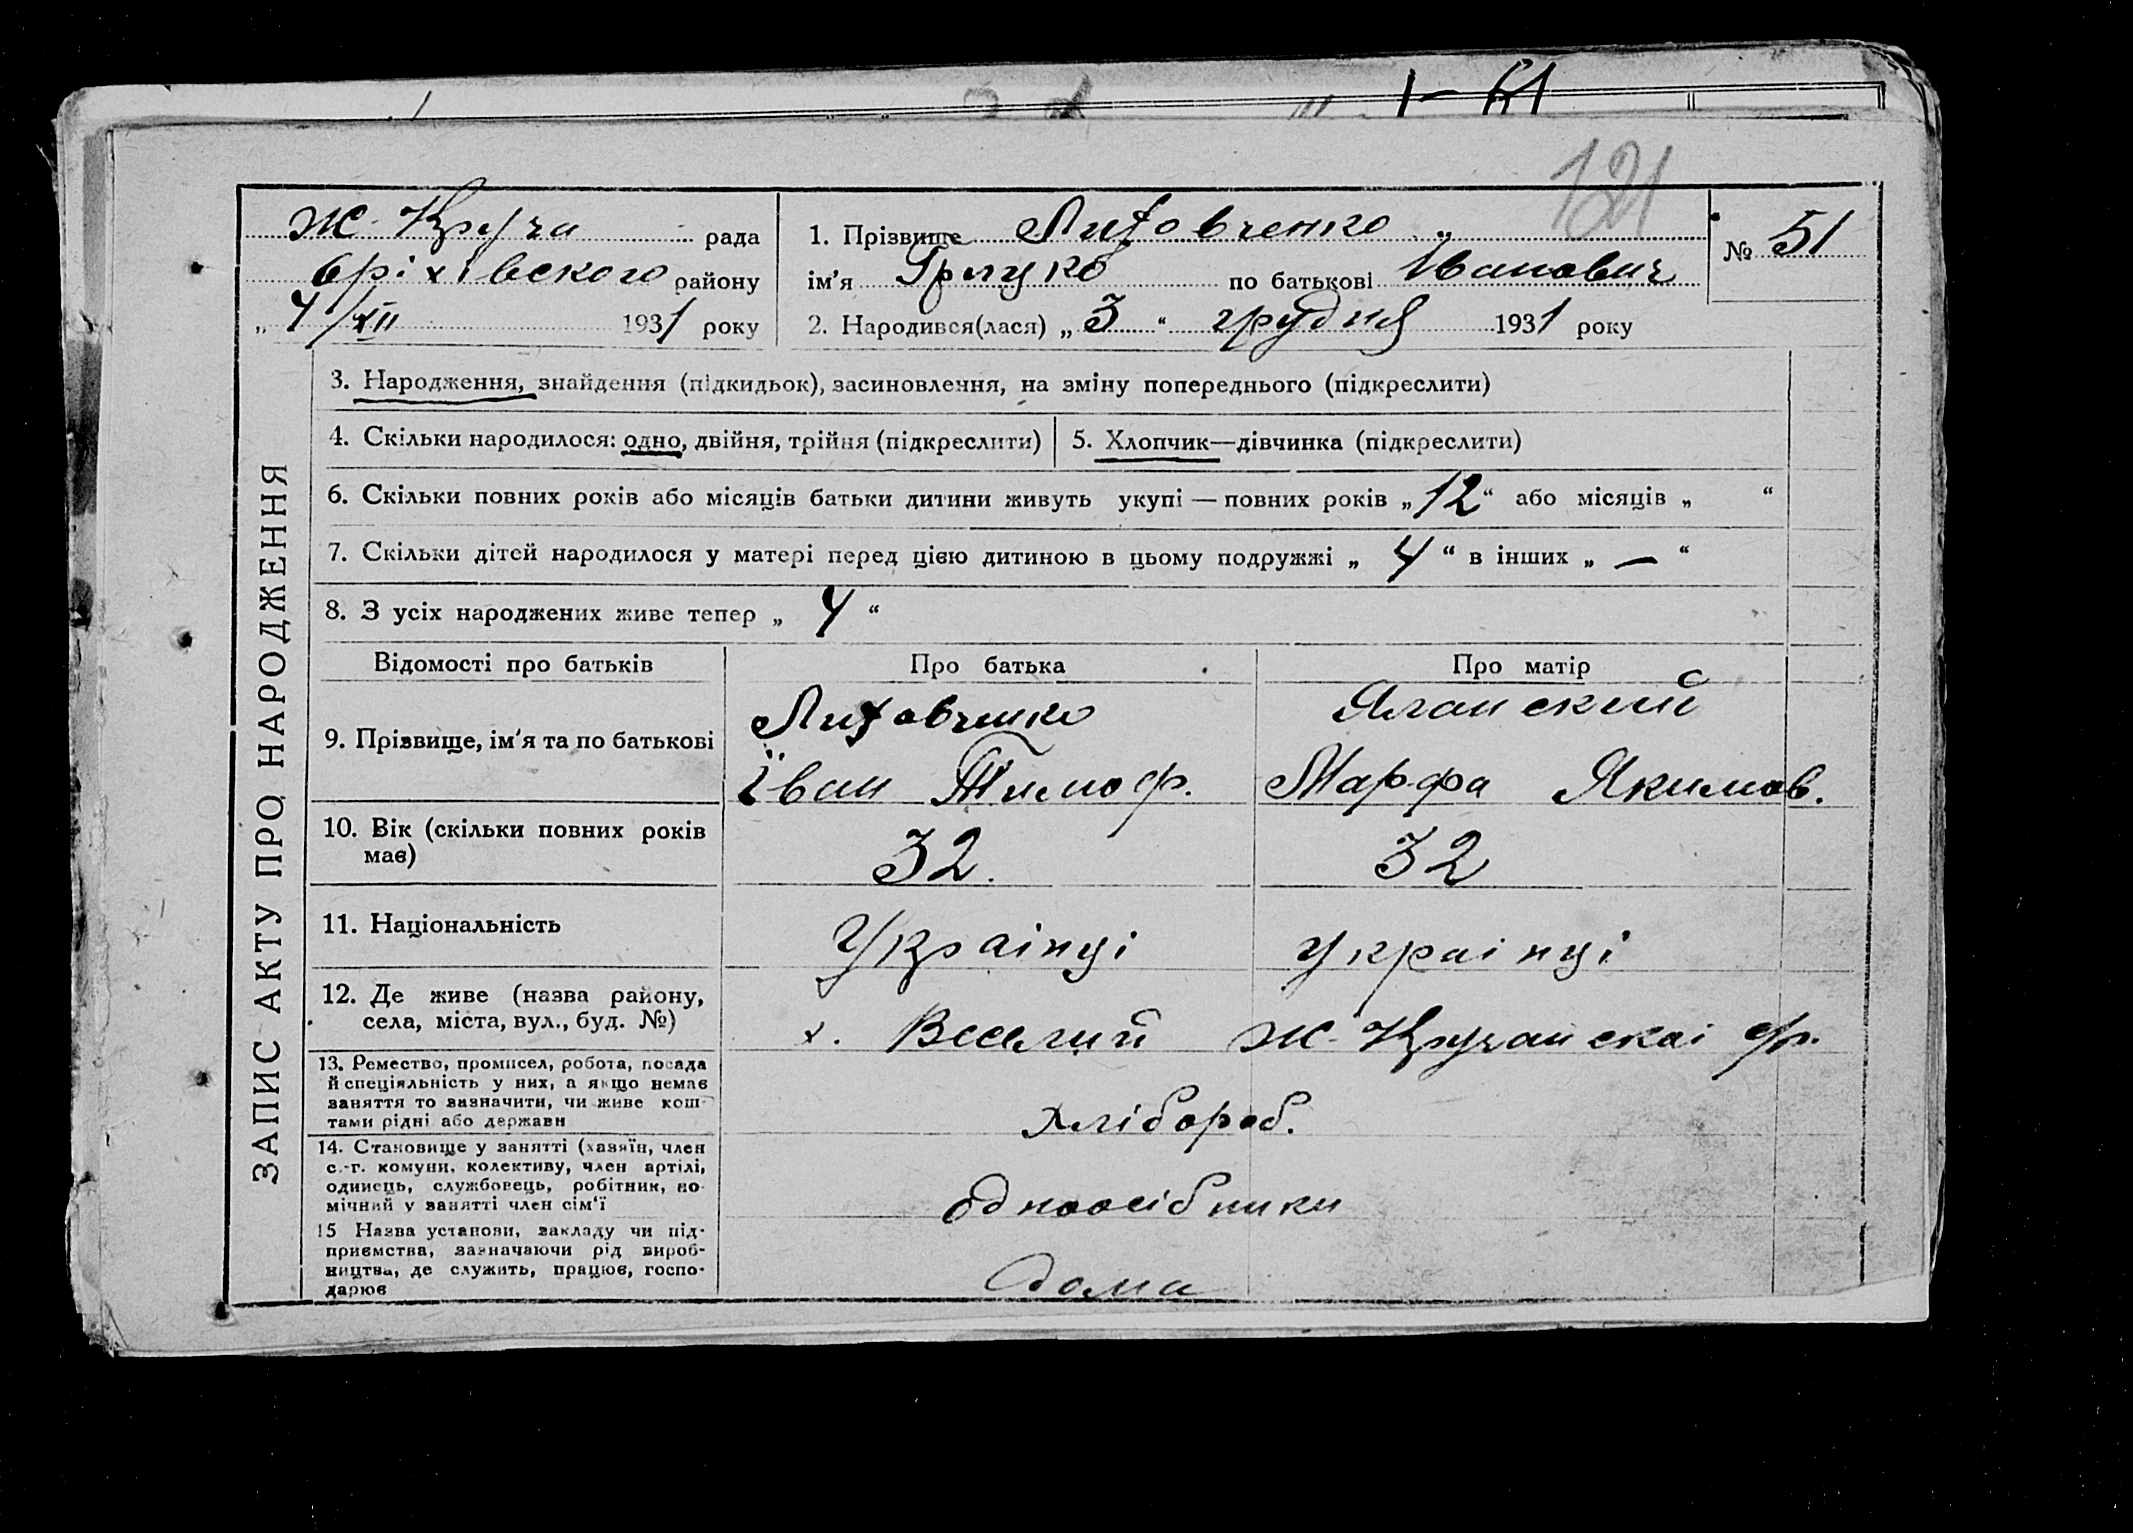 1 — 61
121
Ж. Круча рада
Оріхівского району
„ 4/XII 1931 року
1. Прізвище Лиховченко „
ім’я по батькові Іванович
2. Народився(лася) „ 3 “ грудня 1931 року
№ 51
ЗАПИС АКТУ ПРО НАРОДЖЕННЯ
3. Народження, знайдення (підкидьок), засиновлення, на зміну попереднього (підкреслити)
4. Скільки народилося: одно, двійня, трійня (підкреслити)
5. Хлопчик—дівчинка (підкреслити)
6. Скільки повних років або місяців батьки дитини живуть укупі — повних років „ 12 “ або місяців „ “
7. Скільки дітей народилося у матері перед цією дитиною в цьому подружжі „ 4 “ в інших „ — “
8. З усіх народжених живе тепер „ 4 “
Відомості про батьків
Про батька
Про матір
9. Прізвище, ім’я та по батькові
Лиховченко
Іван Тимоф.
Яланский
Марфа Якимов.
10. Вік (скільки повних років
має)
32.
32
11. Національність
Українці
українці
12. Де живе (назва району,
села, міста, вул., буд. №)
х. Веселий Ж-Кручанскаі ср.
13. Ремество, промисел, робота, посада
й спеціяльність у них, а якщо немає
заняття то зазначити, чи живе кош-
тами рідні або держави
хлібороб.
14. Становище у занятті (хазяїн, член
с.-г. комуни, колективу, член артілі,
одинець, службовець, робітник, по-
мічний у занятті член сім‘ї
одноосібники
15 Назва установи, закладу чи під-
приємства, зазначаючи рід вироб-
ництва, де служить, працює, госпо-
дарює
дома